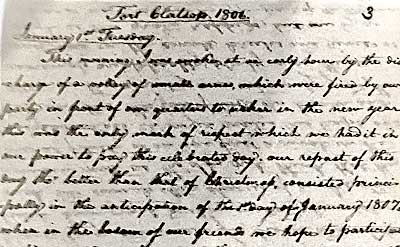 Fort Clatsop. 1806. 3
January 1st Tuesday.
This morning I was awoke at an early hour by the dis
charge of a volley of small arms, which were fired by our
party in front of our quarters to usher in the new year
this was the only mark of rispect which we had it in
our power to pay this celebrated day. our repast of this
day tho' better than that of Christmass, consisted princi
pally in the anticipation of the 1st day of January 1807,
when in the bosom of our friends we hope to participate